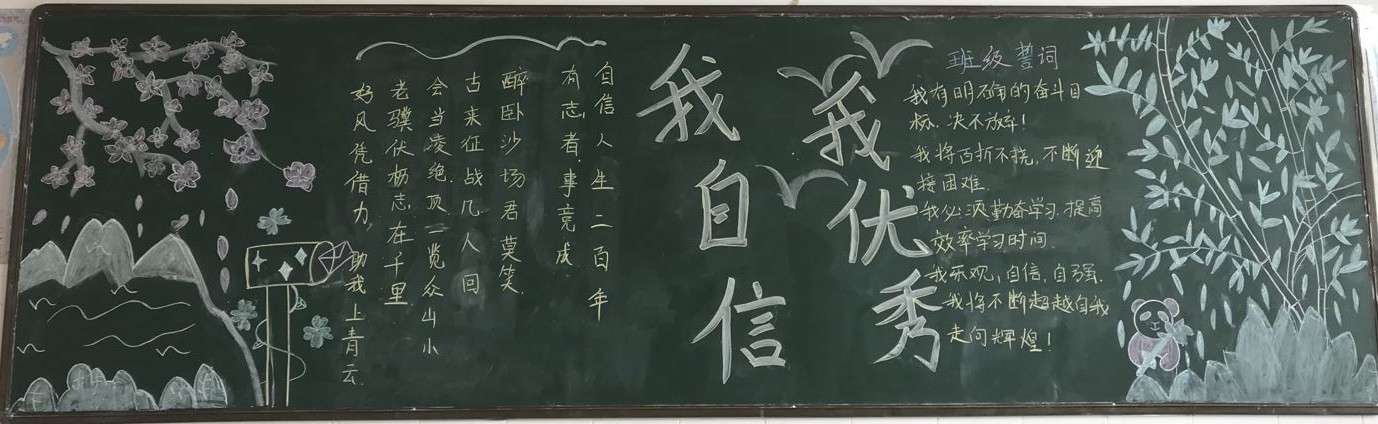 自信人生二百年
有志者,事竟成.
醉卧沙场君莫笑
古来征战几人回
会当凌绝顶,一览众山小
老骥伏枥志在千里
好风凭借力,助我上青云.
我自信
我优秀
班级誓词
我有明确的奋斗目
标.决不放弃!
我将百折不挠,不断迎
接困难.
我必须勤奋学习.提高
效率学习时间.
我乐观,自信,自强.
我将不断超越自我
走向辉煌!